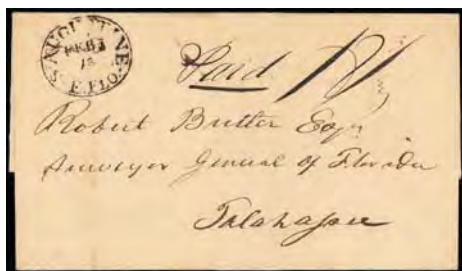 S. AUGUSTINE.
FEB
E. FLO.
Paid
Robert Butler Esqr
Surveyor General of Florida
Talahassee